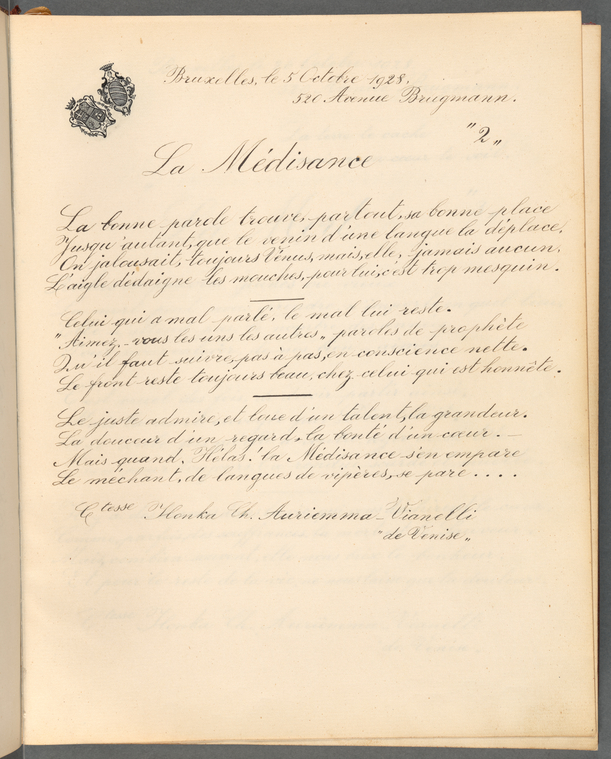 Bruxelles, le 5 Octobre 1928.
520 Avenue Brugmann.
"2"
La Médisance
La bonne parole trouve, partout, sa bonne place
Jusqu'autant, que le venin d'une langue la déplace.
On jalousait, toujours Vénus, mais, elle, jamais aucun.
L'aigle dédaigne les mouches, pour lui, c'est trop mesquin.
Celui qui a mal parlé, le mal lui reste.
"Aimez-vous les uns les autres" paroles de prophète
Qu'il faut suivre, pas à pas, en conscience nette.
Le front reste toujours beau, chez celui qui est honnête.
Le juste admire, et loue d'un talent, la grandeur.
La douceur d'un regard, la bonté d'un coeur. —
Mais quand, Hélas! la Médisance s'en empare
Le méchant, de langues de vipères, se pare....
Ctesse Ilonka Ch. Auriemma-Vianelli
"de Venise"